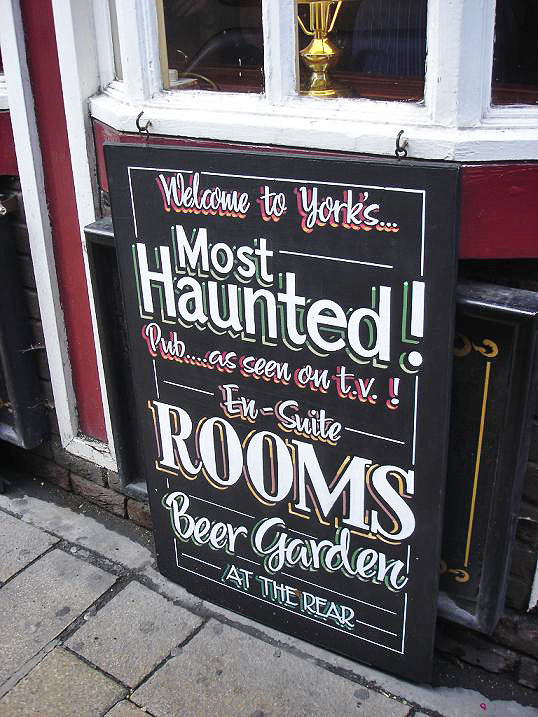 Welcome to York's...
Most
Haunted!
Pub....as seen on t.v. !
En-Suite
ROOMS
Beer Garden
AT THE REAR